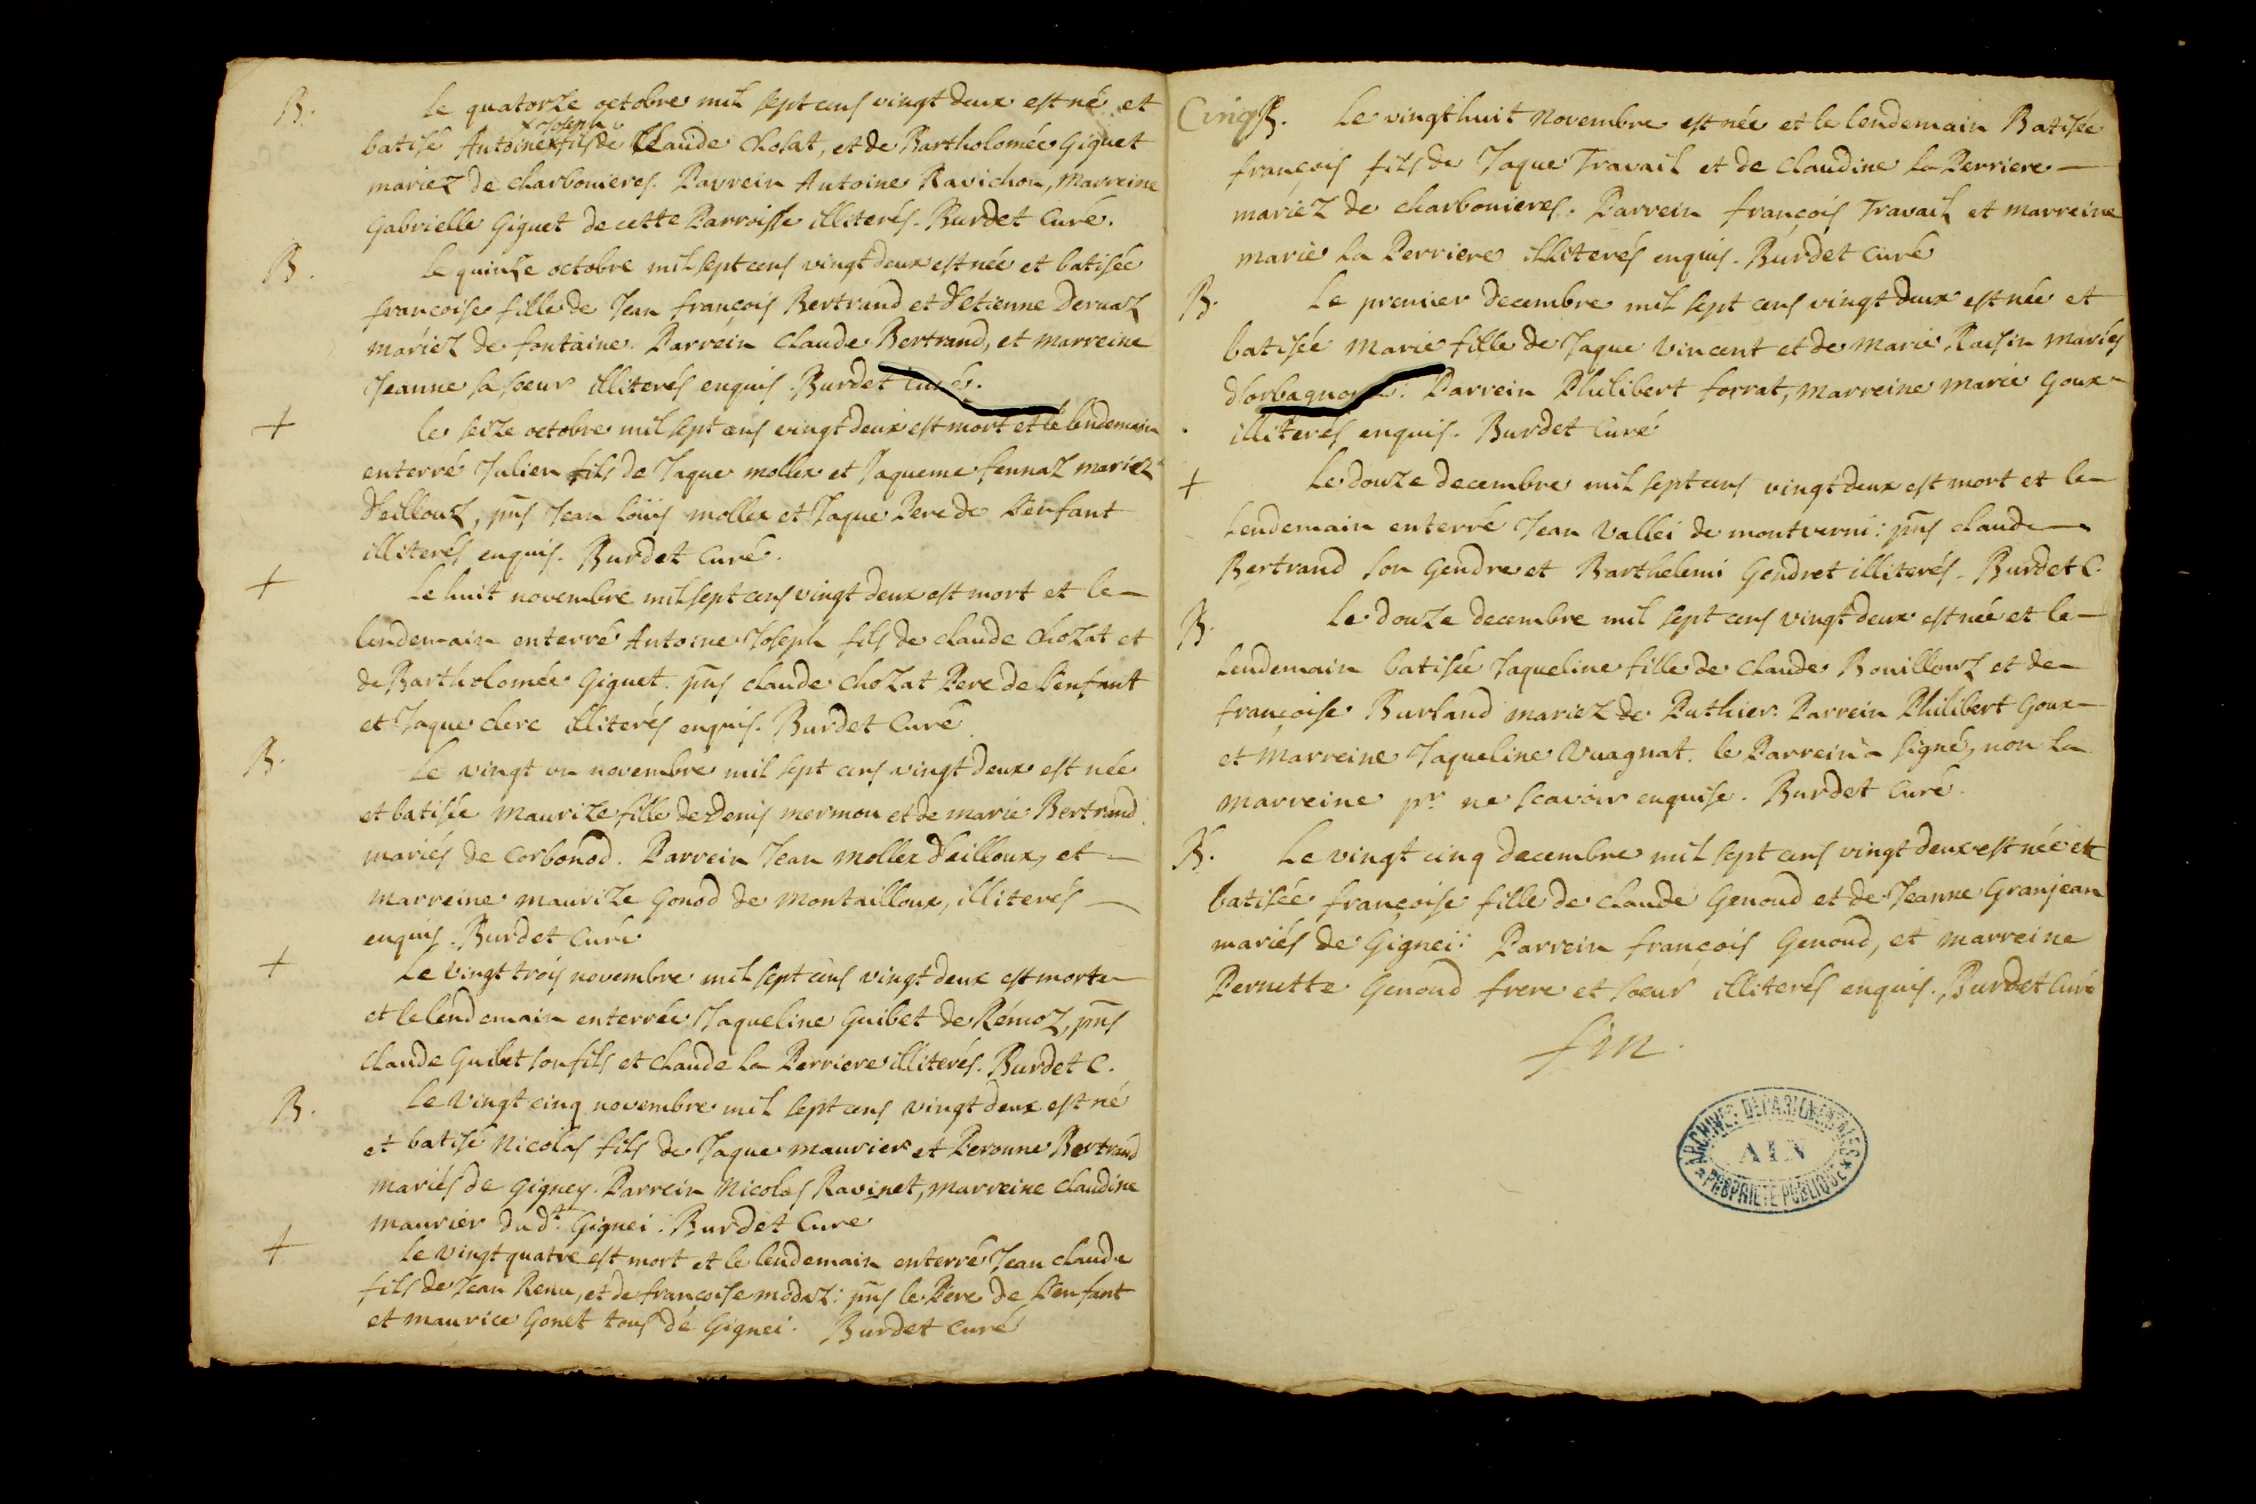 B. Le quatorze octobre mil sept cens vingt deux est né et
x Joseph
batisé Antoine x fils de Claude Chosat, et de Bartholomée Giguet
mariez de charbonieres. Parrein Antoine Ravichon, Marreine
Gabrielle Giguet de cette Parroisse illiterés. Burdet Curé.
B. Le quinze octobre mil sept cens vingt deux est née et batisée
francoise fille de Jean françois Bertrand et d'Etienne Dervaz
mariez de fontaine. Parrein Claude Bertrand, et marreine
Jeanne sa soeur illiterés enquis. Burdet Curé.
+ le seize octobre mil sept cens vingt deux est mort et le lendemain
enterré Julien fils de Jaque mollex et Jaqueme fennaz mariez
d'eillouz, pns Jean Loüis mollex et Jaque Pere de l'enfant
illiterés enquis. Burdet Curé.
+ Le huit novembre mil sept cens vingt deux est mort et le
lendemain enterré Antoine Joseph fils de claude Chozat et
de Bartholomée Giguet. pns claude Chozat Pere de l'enfant
et Jaque clerc illiterés enquis. Burdet Curé.
B. Le vingt un novembre mil sept cens vingt deux est née
et batisée Maurize fille de Denis mermon et de marie Bertrand
mariés de Corbonod. Parrein Jean Mollex d'eilloux, et
marreine maurize Gonod de Montailloux, illiterés
enquis. Burdet Curé
+ Le vingt trois novembre mil sept cens vingt deux est morte
et le lendemain enterrée Jaqueline Guibet de Rémoz, pns
Claude Guibet son fils et Claude La Perriere illiterés. Burdet C.
B. Le vingt cinq novembre mil sept cens vingt deux est né
et batisé Nicolas fils de Jaque maurier et Peronne Bertrand
mariés de Gigney. Parrein Nicolas Ravinet, marreine Claudine
maurier du dt. Gignei. Burdet Cure
+ Le vingt quatre est mort et le lendemain enterré Jean claude
fils de Jean Renu, et de francoise modaz: pns le Pere de l'enfant
et maurice Gonet tous de Gignei. Burdet Curé
Cinq
B. Le vingt huit Novembre est née et le lendemain Batisée
françois fils de Jaque Travail et de Claudine La Perriere
mariez de charbonieres. Parrein françois Travail et marreine
marie La Perriere illiterés enquis. Burdet Curé
B. Le premier decembre mil sept cens vingt deux est née et
batisée Marie fille de Jaque Vincent et de Marie Raisin mariés
d'orbagnoux. Parrein Philibert forrat, marreine marie Goux
illiterés enquis. Burdet Curé
+ Le douze decembre mil sept cens vingt deux est mort et le
Lendemain enterré Jean Vallei de montverni: pns claude
Bertrand son Gendre et Barthelemi Gendret illiterés. Burdet C.
B. Le douze decembre mil sept cens vingt deux est née et le
Lendemain batisée Jaqueline fille de Claude Bouillouz et de
françoise Burland mariez de Puthier. Parrein Philibert Goux
et Marreine Jaqueline Vuagnat. le Parrein a signé, non la
marreine pr ne scavoir enquise. Burdet Curé.
B. Le vingt cinq decembre mil sept cens vingt deux est née et
batisée françoise fille de claude Genoud et de Jeanne Granjean
mariés de Gignei: Parrein françois Genoud, et marreine
Pernette Genoud frere et soeur illiterés enquis. Burdet Curé
fin.
ARCHIVES DEPARTEMENTALES
AIN
* PROPRIETE PUBLIQUE *